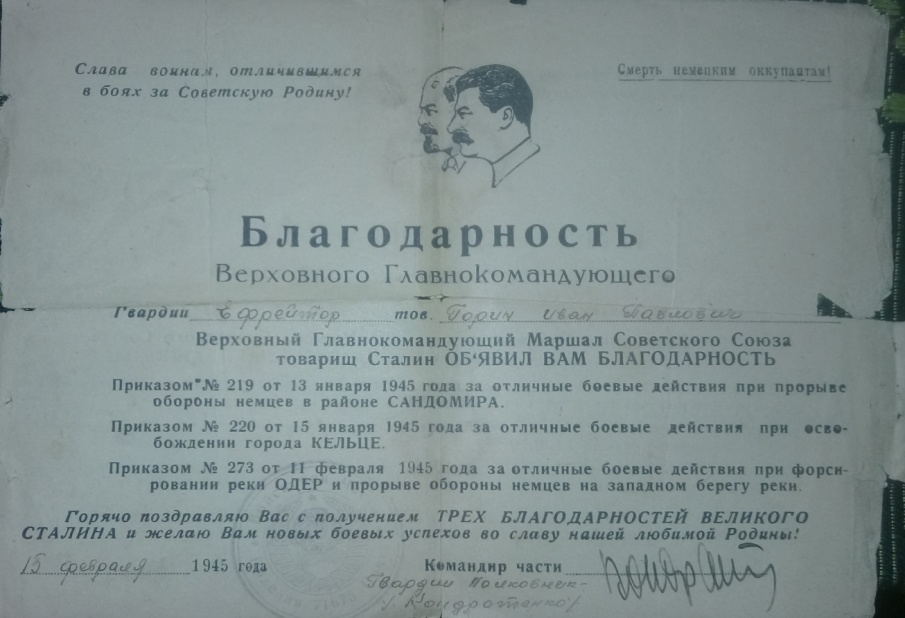 Слава воинам, отличившимся
в боях за Советскую Родину!
Смерть немецким оккупантам!
Благодарность
Верховного Главнокомандующего
Гвардии Ефрейтор тов. Горин Иван Павлович
Верховный Главнокомандующий Маршал Советского Союза
товарищ Сталин ОБ'ЯВИЛ ВАМ БЛАГОДАРНОСТЬ
Приказом № 219 от 13 января 1945 года за отличные боевые действия при прорыве
обороны немцев в районе САНДОМИРА.
Приказом № 220 от 15 января 1945 года за отличные боевые действия при осво-
бождении города КЕЛЬЦЕ.
Приказом № 273 от 11 февраля 1945 года за отличные боевые действия при форси-
ровании реки ОДЕР и прорыве обороны немцев на западном берегу реки.
Горячо поздравляю Вас с получением ТРЕХ БЛАГОДАРНОСТЕЙ ВЕЛИКОГО
СТАЛИНА и желаю Вам новых боевых успехов во славу нашей любимой Родины!
15 февраля 1945 года
Командир части
Гвардии Полковник-
Кондратенко